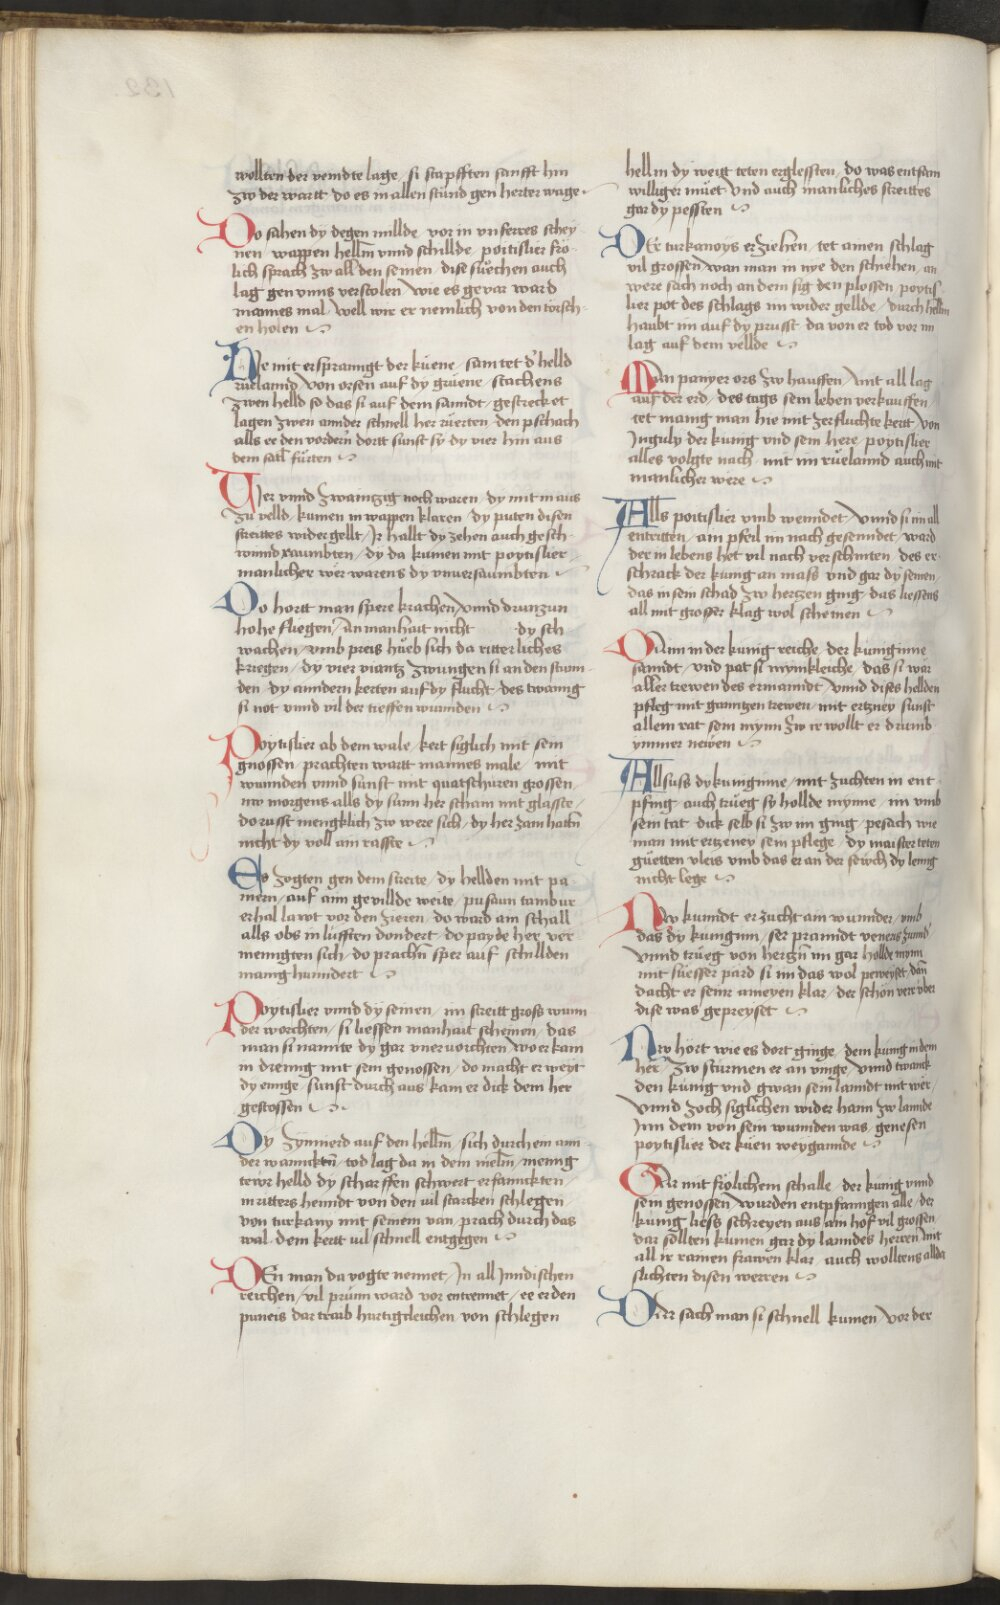 wollten der veindte lage / si stapfften sanfft hin
zw der wartt do es in allen stund gen herter wage
Do sahen dy degen millde / vor in vnferres schey
nen / wappen hellm vnnd schillde / poitislier frö-
lich sprach zw all den seinen / dise suechen auch
lag gen vnns verstolen / wie es gevar ward
mannes mal / well wir er nemlich von den torsch-
en holen
mit erspranngt der küene / sam tet d' helld
ruelannd / von orsen auf dy gruene / stachens
zwen helld so das si auf dem sanndt / gestrecket
lagen zwen annder schnell her ruerten / den pschach
alls ee den vordern dortt sunst sy dy vier hin aus
dem satl fürten
Vier vnnd zwainzig noch waren / dy mit in aus
zu velld / kumen in wappen klaren / dy puten disen
streittes widergellt / Ir hallt dy zehen auch gesch-
wind raumbten / dy da kumen mit poytislier
manlicher wer warens dy vnversaumbten
Do hortt man spere krachen / vnnd drunzun
hohe fliegen / An manhait nicht dy sch
wachen / vmb preis hueb sich da ritterliches
kriegen / dy vier vianntz zwungen si an den stun-
den / dy anndern kerten auf dy flucht / des twanng
si not vnnd vil der tieffen wunnden
Poytislier ab dem wale / kert siglich mit sein
gnossen / prachten wartt mannes male / mit
wunnden vnnd sunst mit quatschüren grossen
nw morgens alls dy sunn her schain mit glasste /
do rasst mengklich zw were sich / dy her zam hattn
nicht dy voll ain rasste
Es zogten gen dem streite / dy hellden mit pa-
niern / auf ain gevillde weite / pusaun tambur
erhal lawt vor den zieren / do ward ain schall
alls obs in lüfften dondert / do payde her ver-
menngten sich / do prachn sper auf schillden
manng hunndert
Poytislier vnnd dy seinen / im streitt gross wunn
der worchten / si liessen manhait scheinen / das
man si nannte dy gar vnervorchten / wo er kam
in drenng mit sein genossen / do macht er weyt
dy ennge / sunst durch aus kam er dick dem her
gestossen
Dy zymierd auf den hellm / sich durch ein ann
der wanncktn / tod lag da in dem melm / menng
tewr helld dy scharffen schwert erfannckten /
in ritters hennndt von den vil starcken schlegen
von turkany mit seinem van / prach durch das
wal / dem kertt vil schnell entgegen
DEn man da vogte nennet / In all Inndischen
reichen / vil prünn ward vor entrennet / ee er den
puneis dar traib hurtigcleichen / von schlegen
hellm dy weit teten erglessten / do was entsam
williger muet vnd auch manliches streittes
gar dy pessten
DEr turkanoys er ziehen / tet ainen schlag
vil grossen / wan man in nye den schiehen / an
were sach noch an dem sig den plossen / poytis-
lier pot des schlags im wider gellde / durch hellm
haubt im auf dy prusst / da von er tod vor im
lag auf dem vellde
Man panyer ors zw hauffen / mit all lag
auf der erd / des tags sein leben verkauffen /
tet manig man hie mit zer fluchte kertt / von
Inguly der kunig vnd sein here / poytislier
alles volgte nach / mit im rüelannd auch mit
manlicher were
Alls poitislier vmb wenndet / vnnd si im all
entritten / ain pfeil im nach gesenndet / ward
der in lebens het vil nach verschniten / des er-
schrack der kunig an mass vnd gar dy seinen /
das in sein schad zw hertzen ging / das liessens
all mit grosser klag wol scheinen
in der kunig reiche / der kuniginne
sanndt / vnd pat si mynnkleiche / das si wär
aller trewen des ermanndt / vnnd dises hellden
pfleg mit ganntzen trewen / mit ertzney sunst
allem rat sein mynn zw ir wollt er drumb
ymmer newen
Allsuss dy kuniginne / mit zuchten in ent-
pfing / auch trueg sy hollde mynne / im vmb
sein tat / dick selb si zw im ging / pesach wie
man mit ertzeney sein pflege / dy maister teten
guetten vleis vmb das er an der seuch dy lenng
nicht lege
Nw kunndt er zucht ain wunnder / vmb
das dy kungin / ser prannndt veneris zunnd'
vnnd trueg von hertzn im gar hollde mynn
mit suesser pärd si im das wol peweyset / dan
dacht er seinr ameyen klar / der schön verr vber
dise was gepreyset
Nw hört wie es dort ginge / dem kunig in dem
her / zw sturmen er an vinge / vnnd twanck
den kunig vnd gwan sein lanndt mit wer /
vnnd zoch siglichen wider haim zw lannde
Inn dem von sein wunnden was genesen
poytislier der küen weygannde
Gar mit frölichem schalle / der kunig vnnd
sein genossen / wurden entpfanngen alle / der
kunig liess schreyen aus ain hof vil grossen /
dar sollten kumen gar dy lanndes herren / mit
all ir rainen frawen klar / auch wolltens allda
slichten disen werren
sach man si schnell kumen / vor der